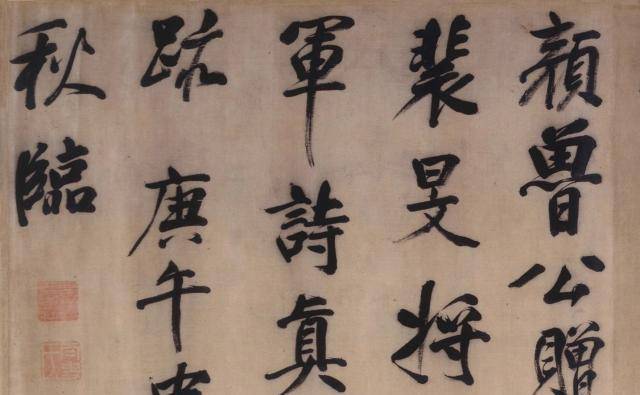 顏魯公贈
裴旻將
軍詩真
跡庚午
秋臨